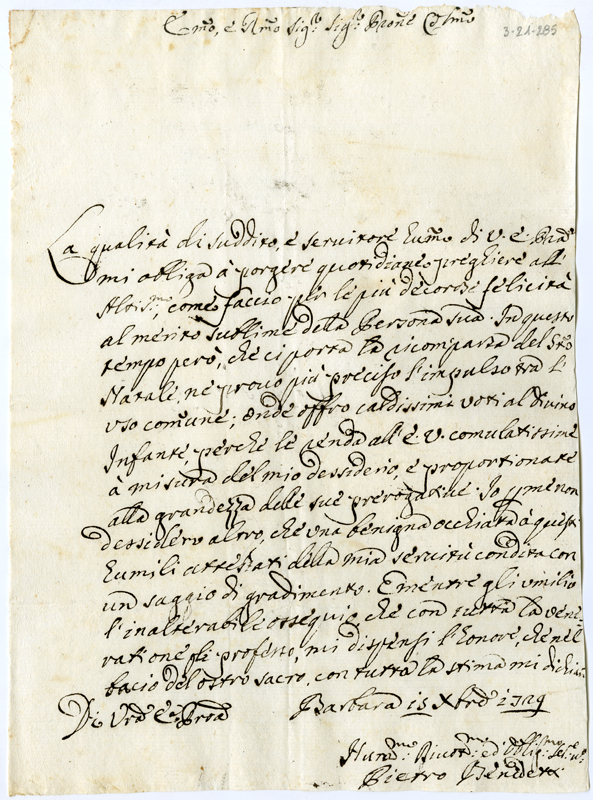 Emo, e Rmo Sigr: Sigr: Prone Colmo
3-21-285
La qualità di suddito, e servitore humo di V. E. Pma
mi obliga à porgere quotidiane preghiere all'
Altismo, come faccio per le più decorose felicità
al merito sublime della Persona sua. In questo
tempo però, che ci porta la ricomparsa del Sto
Natale, ne provo più preciso l'impulso tra l'
uso comune; onde offro caldissimi voti al Divino
Infante, perche le renda all' E. V. comulatissime
à misura del mio dessiderio, e proportionate
alla grandezza delle sue prerogative. Io p me non
dessidero altro, che una benigna occhiata à questi
humili attestati della mia servitù condita con
un saggio di gradimento. E mentre gli umilio
l'inalterabile ossequio, che con tutta la vene-
ratione gli professo, mi dispensi l'honore, che nel
bacio del ostro sacro, con tutta la stima mi dichiari
Di Vra Ea Rma Barbara 15 Xbre 1729
Humo: Divotmo: ed Obligmo: Sere:
Pietro Benedetti